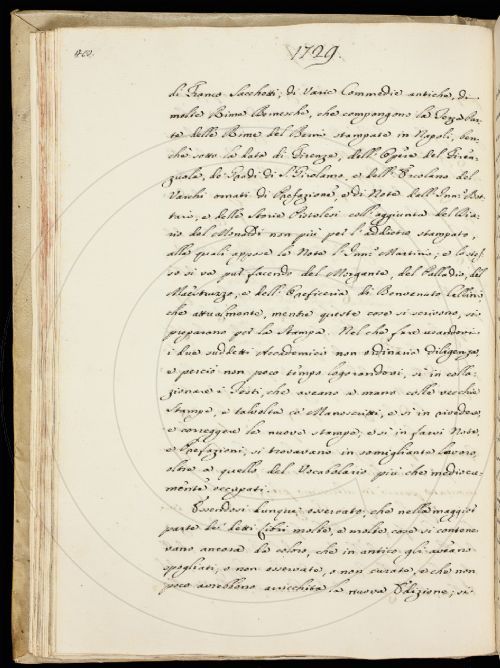 402.
1729.
di Franco Sacchetti; di Varie Commedie antiche, di
molte Rime Bernesche, che compongono la Terza Par-
te delle Rime del Berni stampate in Napoli, ben-
chè sotto la data di Firenze, dell'Opere del Firen-
zuola, de' Fradi di S. Girolamo, e dell'Ercolano del
Varchi ornati di Prefazione, e di Note dall'Inn. Bot-
tario, e delle Storie Pistolesi coll'aggiunta del Dia-
rio del Monaldi non più per l'addietro stampato,
alle quali appose le Note l'Inn. Martini; e lo stes-
so si va pur facendo del Morgante, del Palladio, del
Maestruzzo, e dell'Oreficeria di Benvenuto Cellini
che attualmente, mentre queste cose si scrivono, si
preparano per la Stampa. Nel che fare usandovi
i due suddetti Accademici non ordinaria diligenza,
e perciò non poco tempo logorandovi, sì in colla-
zionare i Testi, che aveano a mano colle vecchie
Stampe, e talvolta co' Manoscritti, e sì in rivedere,
e correggere le nuove stampe, e sì in farvi Note,
e Prefazioni, si trovavano in somigliante lavoro,
oltre a quello del Vocabolario più che mediocre-
mente occupati.
Essendosi dunque osservato, che nella maggior
parte de' detti Libri molte, e molte cose vi contene-
vano ancora da coloro, che in antico gli aveano
spogliati, o non osservate, o non curate, e che non
poco avrebbono arricchita la nuova Edizione; si